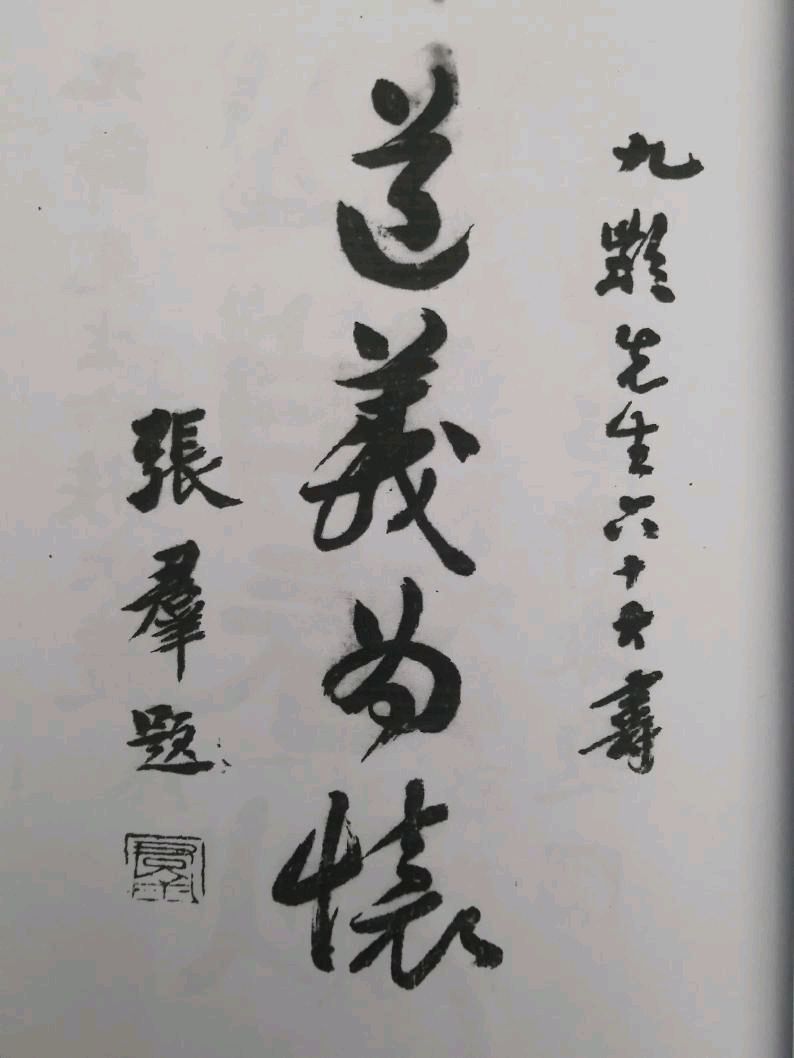 九顥先生六十大壽
道義為懷
張羣題